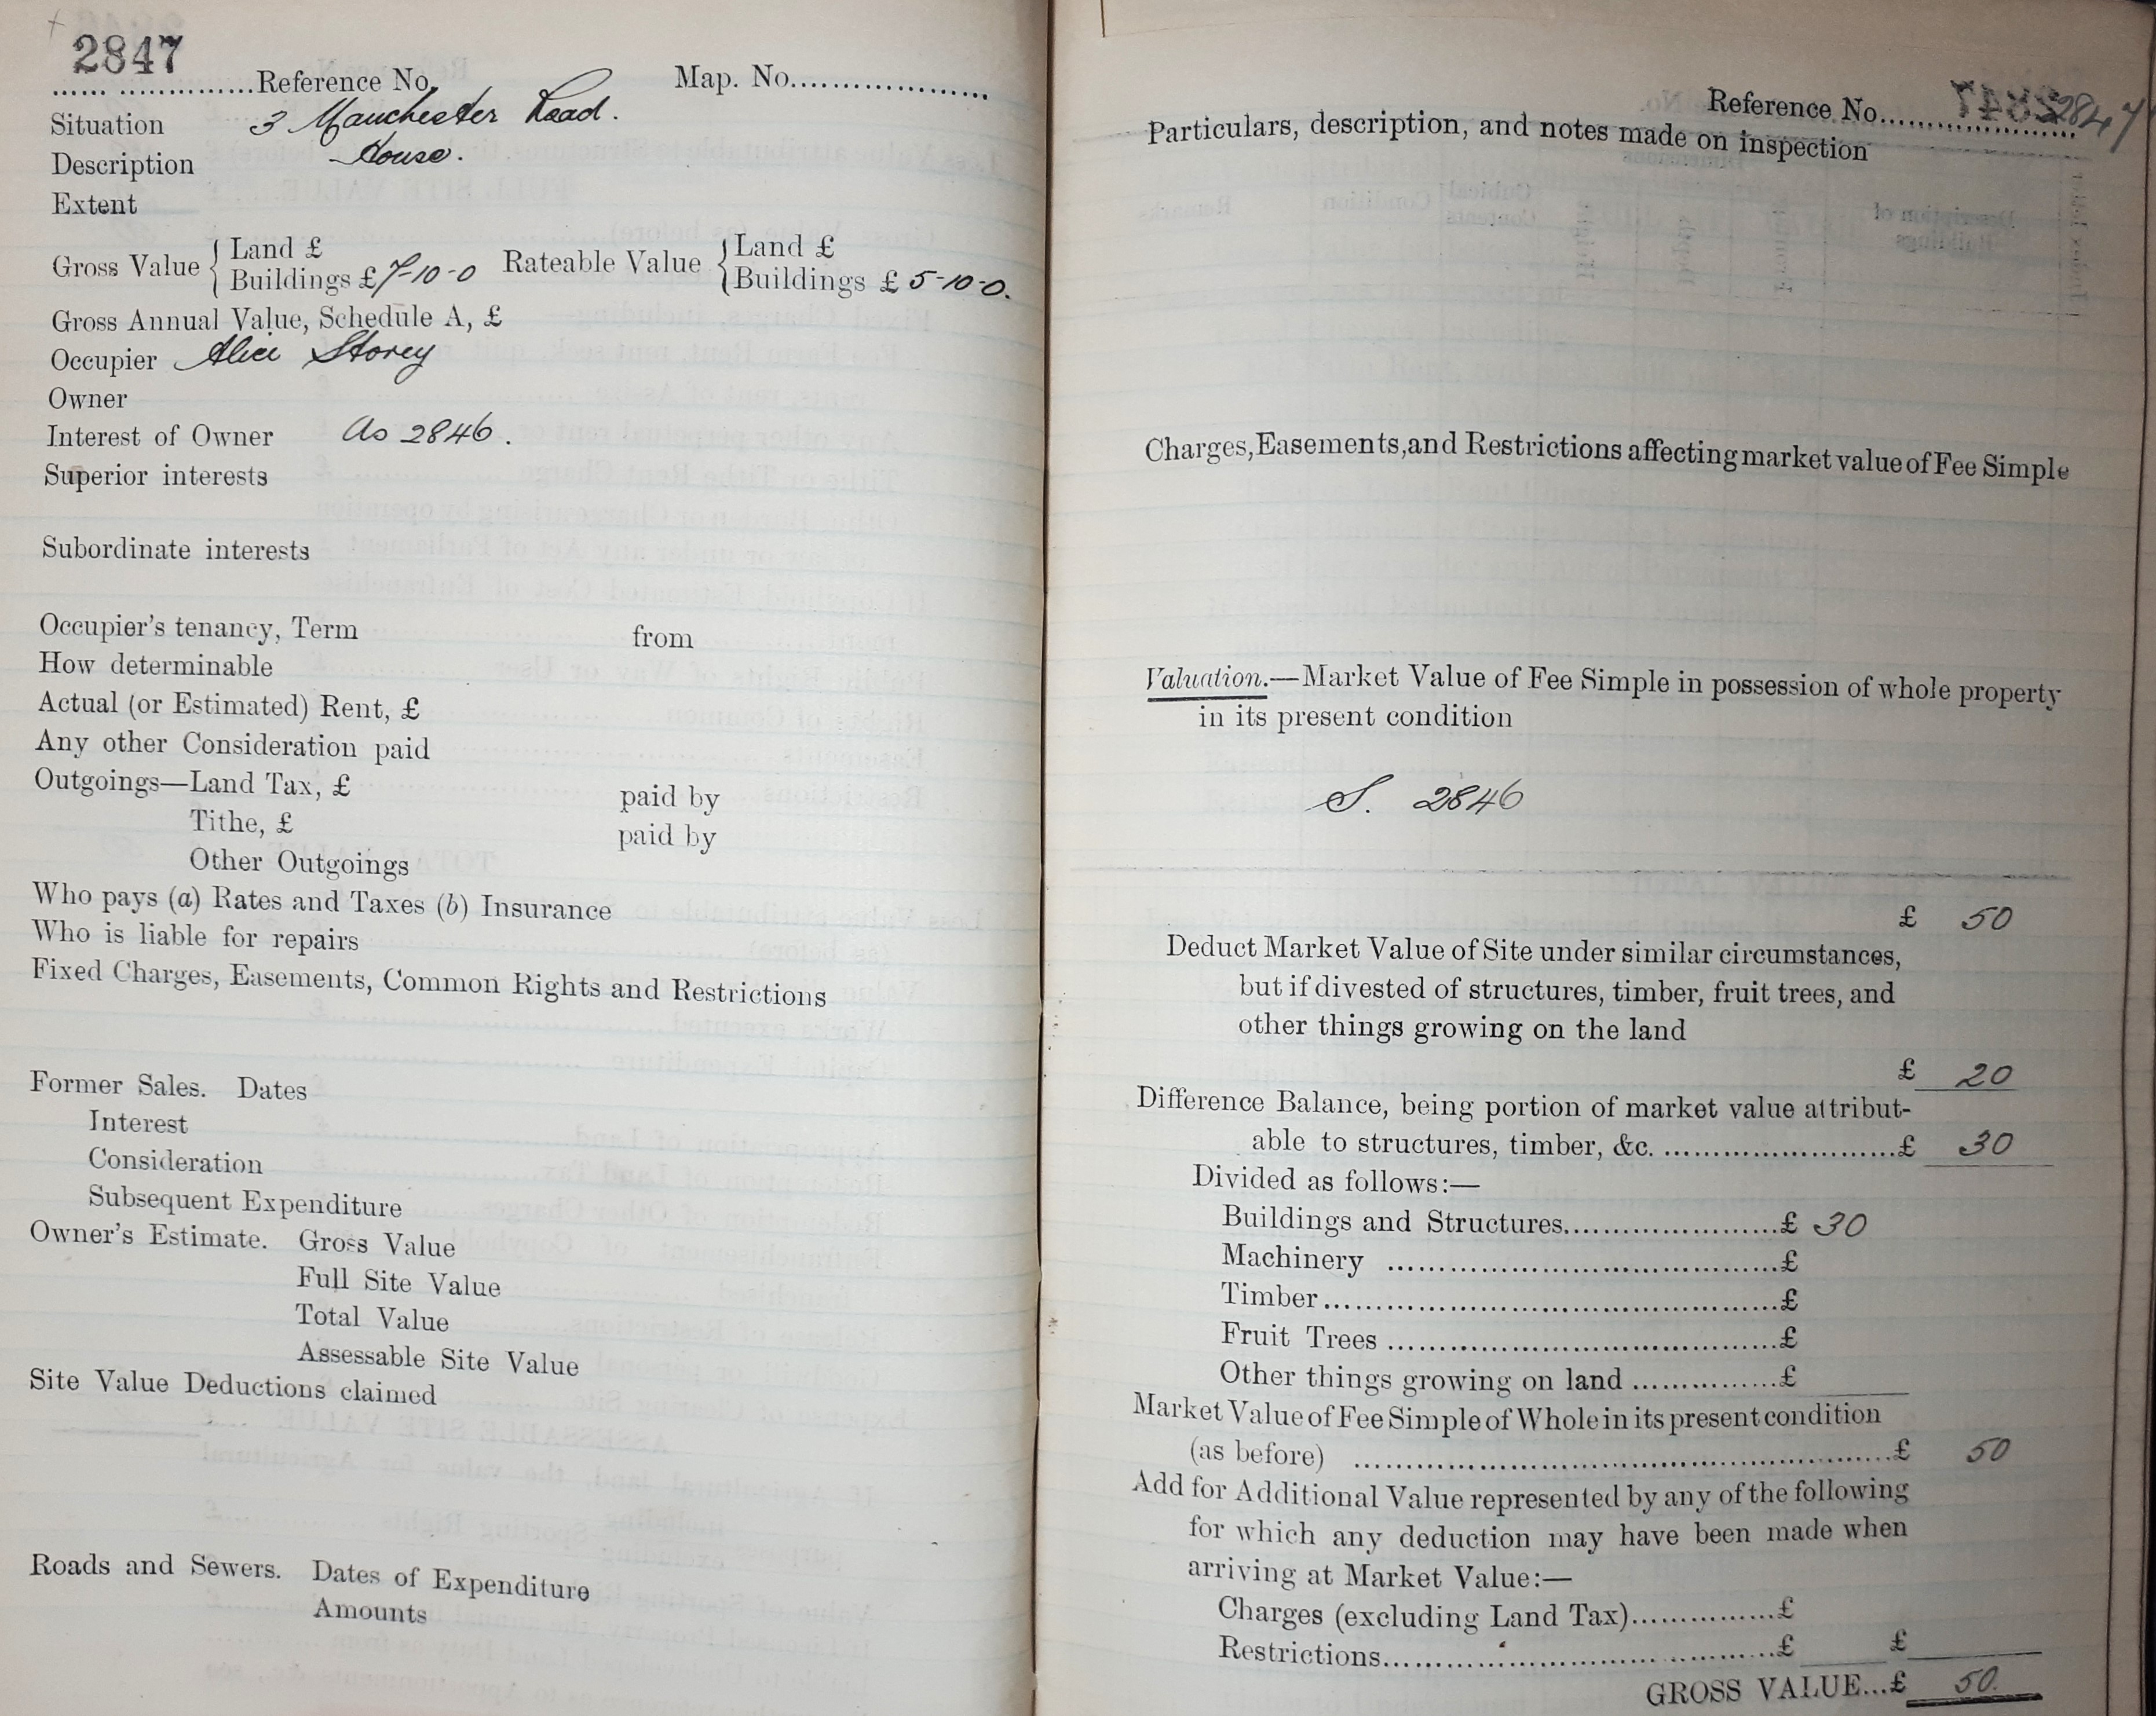 2847
...... ...............Reference No. Map. No....................
Situation 3 Manchester Road.
Description House.
Extent
Gross Value { Land £
Buildings £ 7-10-0 Rateable Value { Land £
Buildings £ 5-10-0.
Gross Annual Value, Schedule A, £
Occupier Alice Storey
Owner
Interest of Owner As 2846.
Superior interests
Subordinate interests
Occupier's tenancy, Term from
How determinable
Actual (or Estimated) Rent, £
Any other Consideration paid
Outgoings—Land Tax, £ paid by
Tithe, £ paid by
Other Outgoings
Who pays (a) Rates and Taxes (b) Insurance
Who is liable for repairs
Fixed Charges, Easements, Common Rights and Restrictions
Former Sales. Dates
Interest
Consideration
Subsequent Expenditure
Owner's Estimate. Gross Value
Full Site Value
Total Value
Assessable Site Value
Site Value Deductions claimed
Roads and Sewers. Dates of Expenditure
Amounts
Reference No.................... 2847
Particulars, description, and notes made on inspection
Charges, Easements, and Restrictions affecting market value of Fee Simple
Valuation.—Market Value of Fee Simple in possession of whole property
in its present condition
S. 2846
£ 50
Deduct Market Value of Site under similar circumstances,
but if divested of structures, timber, fruit trees, and
other things growing on the land
£ 20
Difference Balance, being portion of market value attribut-
able to structures, timber, &c. ..........................£ 30
Divided as follows:—
Buildings and Structures........................£ 30
Machinery ..........................................£
Timber.................................................£
Fruit Trees ..........................................£
Other things growing on land ................£
Market Value of Fee Simple of Whole in its present condition
(as before) ..........................................................£ 50
Add for Additional Value represented by any of the following
for which any deduction may have been made when
arriving at Market Value:—
Charges (excluding Land Tax)................£
Restrictions..........................................£ £
GROSS VALUE...£ 50.